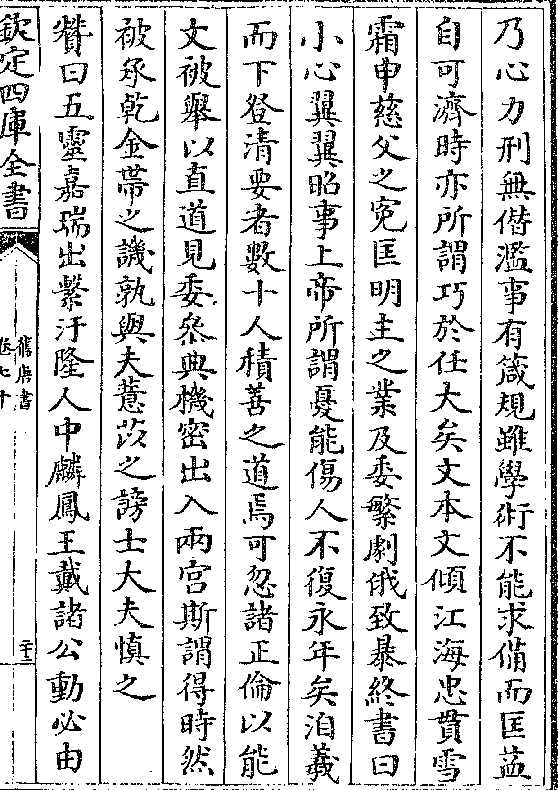 乃心力刑無僭濫事有箴規雖學術不能求備而匡益
自可濟時亦所謂巧於任大矣文本文傾江海忠貫雪
霜申慈父之寃匡明主之業及委繁劇俄致暴終書曰
小心翼翼昭事上帝所謂憂能傷人不復永年矣洎羲
而下登清要者數十人積善之道焉可忽諸正倫以能
文被舉以直道見委叅典機密出入兩宫斯謂得時然
被承乾金帶之譏孰與夫薏苡之謗士大夫慎之
贊曰五靈嘉瑞出繫汙隆人中麟鳳王戴諸公動必由
欽定四庫全書
舊唐書
卷七十
二十三